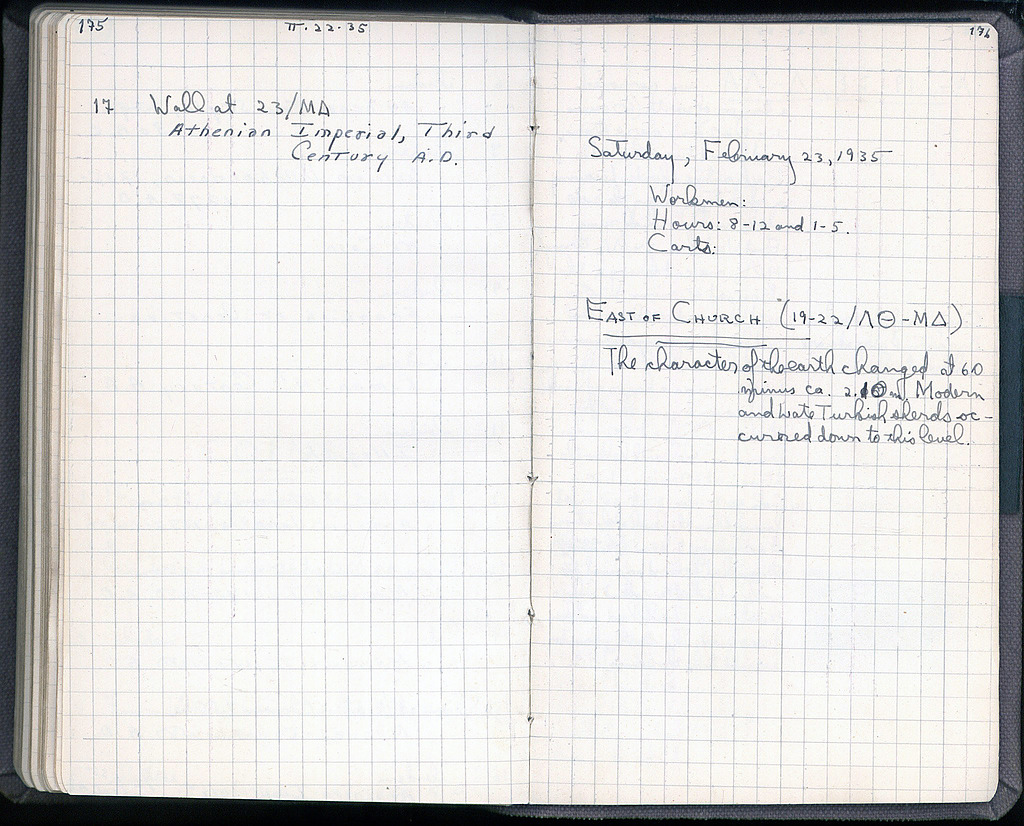 175
II.22.35
17 Wall at 23/ΜΔ
Athenian Imperial, Third
Century A.D.
176
Saturday, February 23, 1935
Workmen:
Hours: 8-12 and 1-5.
Carts:
EAST OF CHURCH (19-22/ΛΘ-ΜΔ)
The character of the earth changed at 60
minus ca. m. Modern
and Late Turkish sherds oc-
curred down to this level.